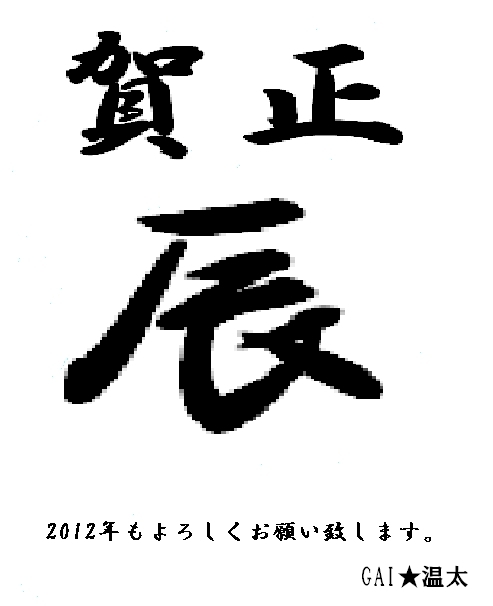 賀正
辰
2012年もよろしくお願い致します。
GAI★温太